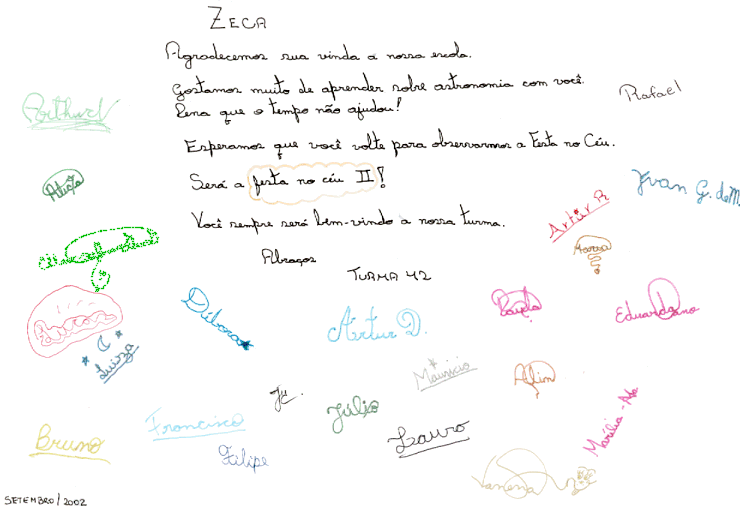 ZECA
Agradecemos sua vinda a nossa escola.
Gostamos muito de aprender sobre astronomia com você.
Pena que o tempo não ajudou!
Rafael
Esperamos que você volte para observarmos a Festa no Céu.
Alícia
Será a festa no céu II!
Yvan G. de M.
Artur R
Você sempre será bem-vindo a nossa turma.
Marina
Abraços
TURMA 42
Débora
Paula
Eduardo
Artur D.
Luiza
Maurício
Alin
Ju.
Júlio
Francisco
Lauro
Marília
Bruno
Felipe
Vanessa
SETEMBRO/2002